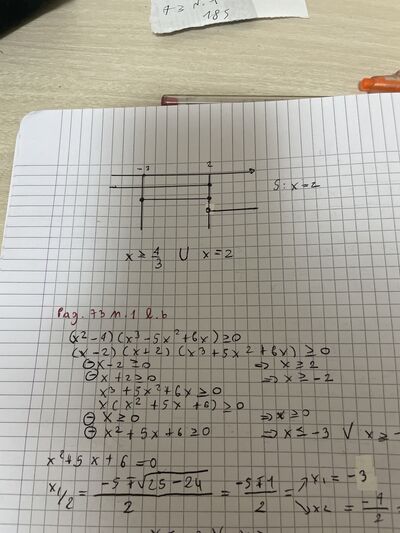 n. 1
185
-3 2
S: x=2
x ≥ 4/3 U x = 2
Pag. 73 n. 1 l. b
(x²-4) (x³-5x²+6x) ≥ 0
(x-2) (x+2) (x³+5x²+6x) ≥ 0
⊖ x-2 ≥ 0 ⇒ x ≥ 2
⊖ x+2 ≥ 0 ⇒ x ≥ -2
x³+5x²+6x ≥ 0
x(x²+5x+6) ≥ 0
⊖ x ≥ 0 ⇒ x ≥ 0
⊖ x²+5x+6 ≥ 0 ⇒ x ≤ -3 V x ≥ -
x²+5x+6=0
x1/2 = -5∓√25-24 / 2 = -5∓1 / 2 = x1 = -3
x2 = -4/2 =